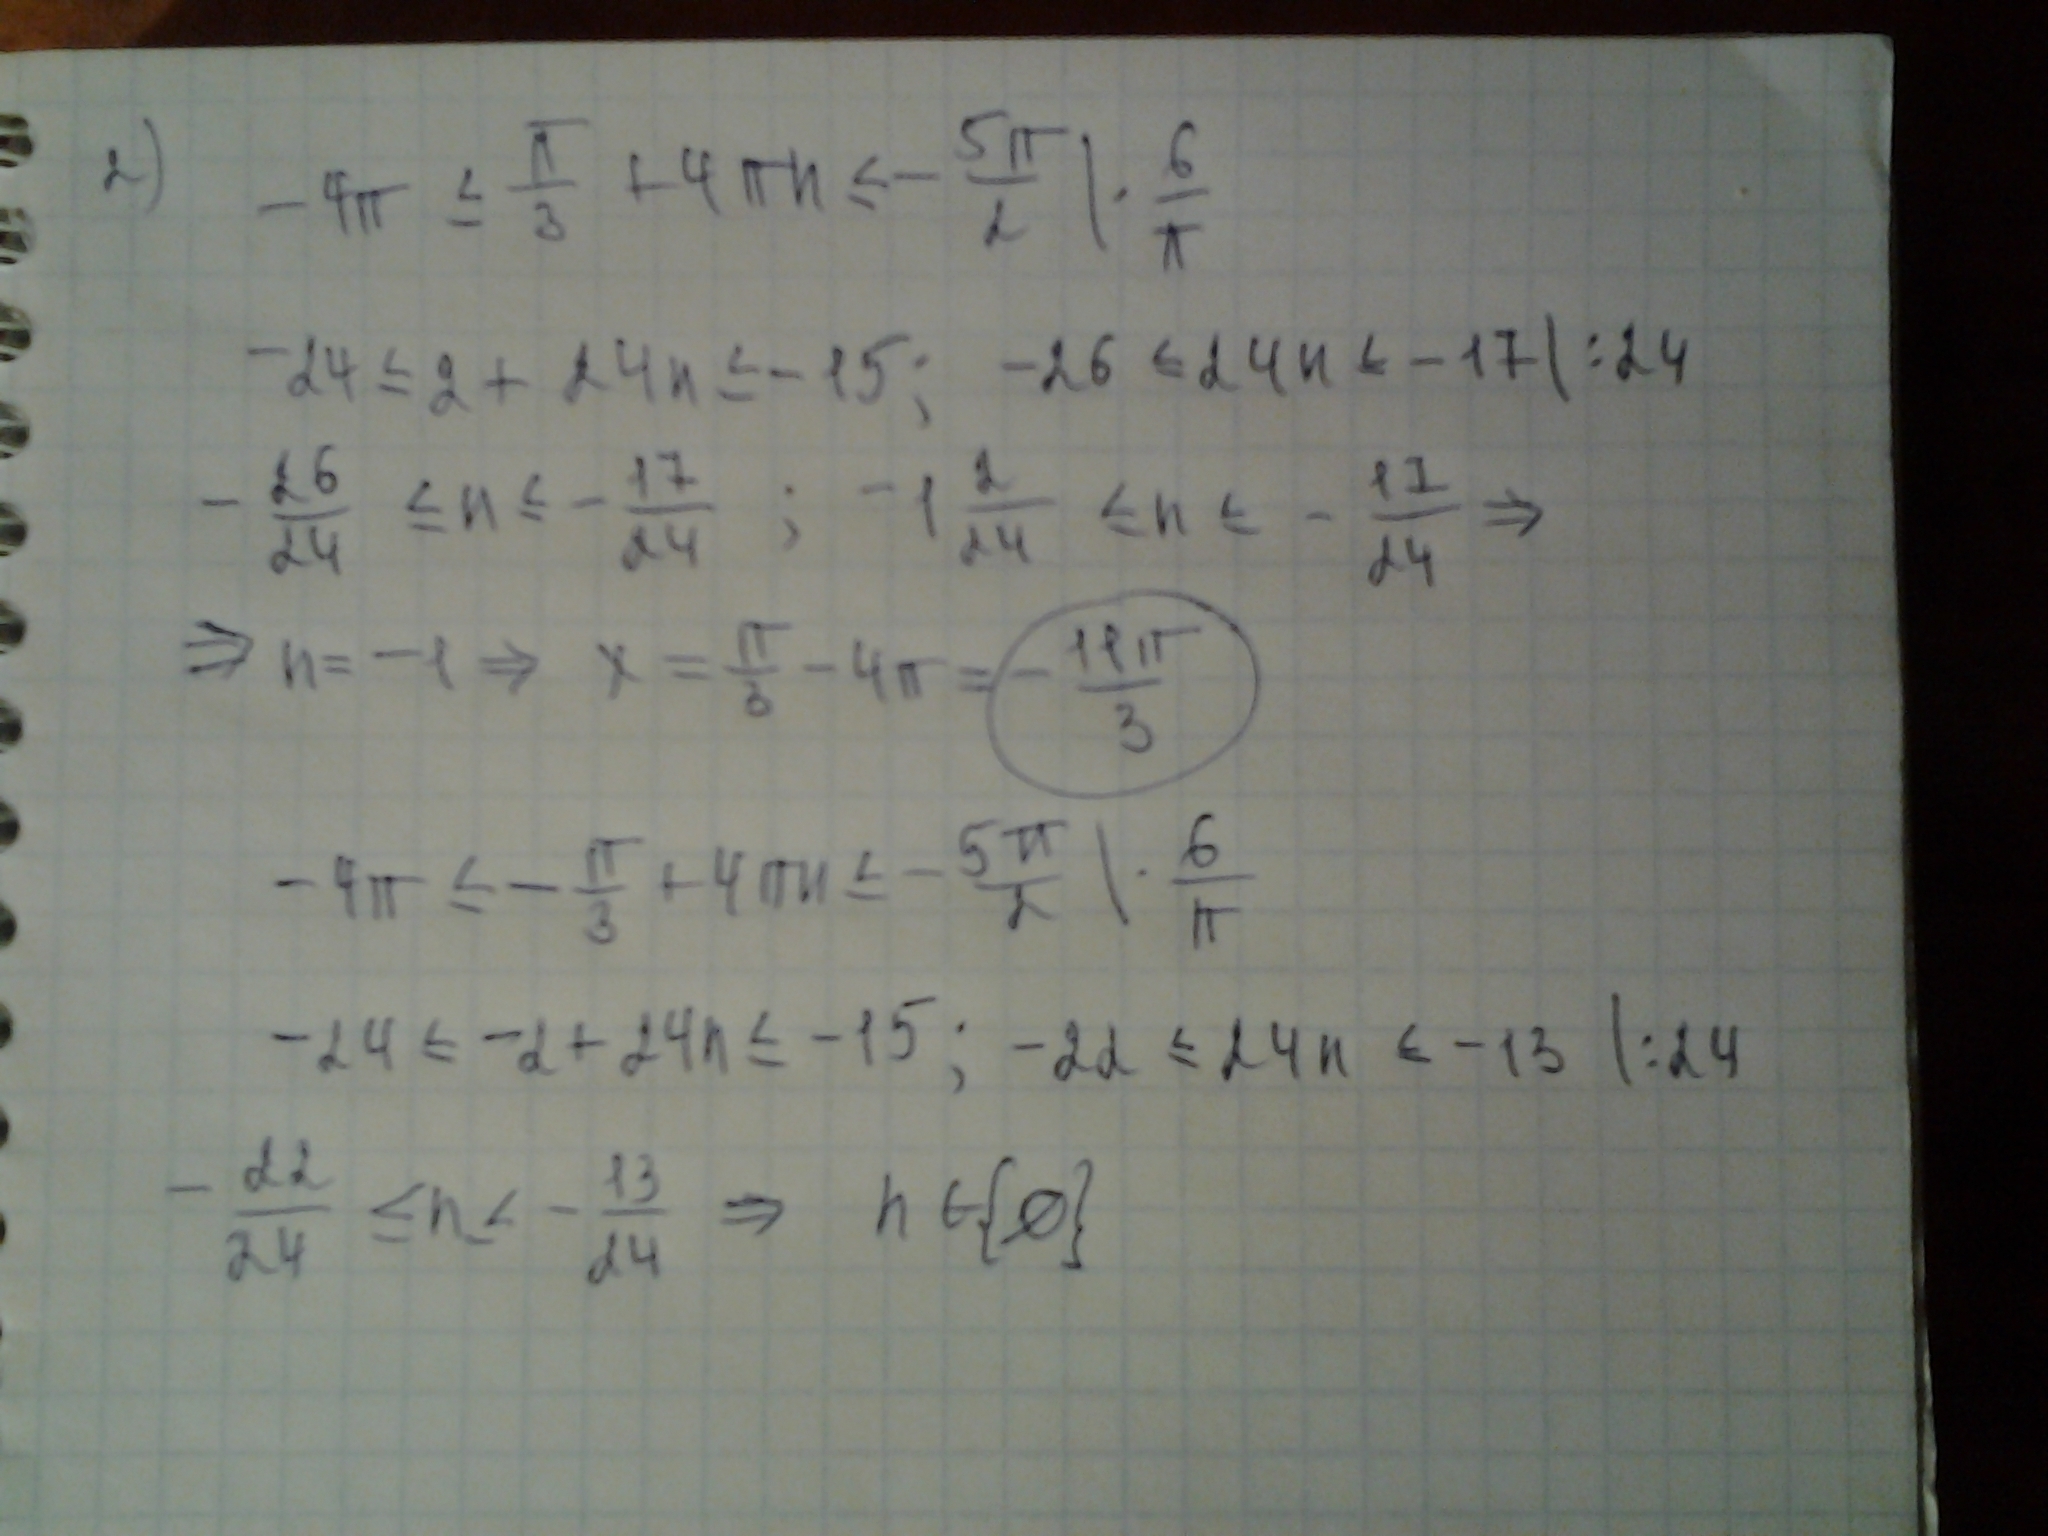 2) -4π ≤ π/3 + 4πn ≤ -5π/2 | · 6/π
-24 ≤ 2 + 24n ≤ -15; -26 ≤ 24n ≤ -17 | :24
-26/24 ≤ n ≤ -17/24 ; -1 2/24 ≤ n ≤ -17/24 ⇒
⇒ n = -1 ⇒ x = π/3 - 4π = -11π/3
-4π ≤ -π/3 + 4πn ≤ -5π/2 | · 6/π
-24 ≤ -2 + 24n ≤ -15; -22 ≤ 24n ≤ -13 | :24
-22/24 ≤ n ≤ -13/24 ⇒ n ∈ {∅}